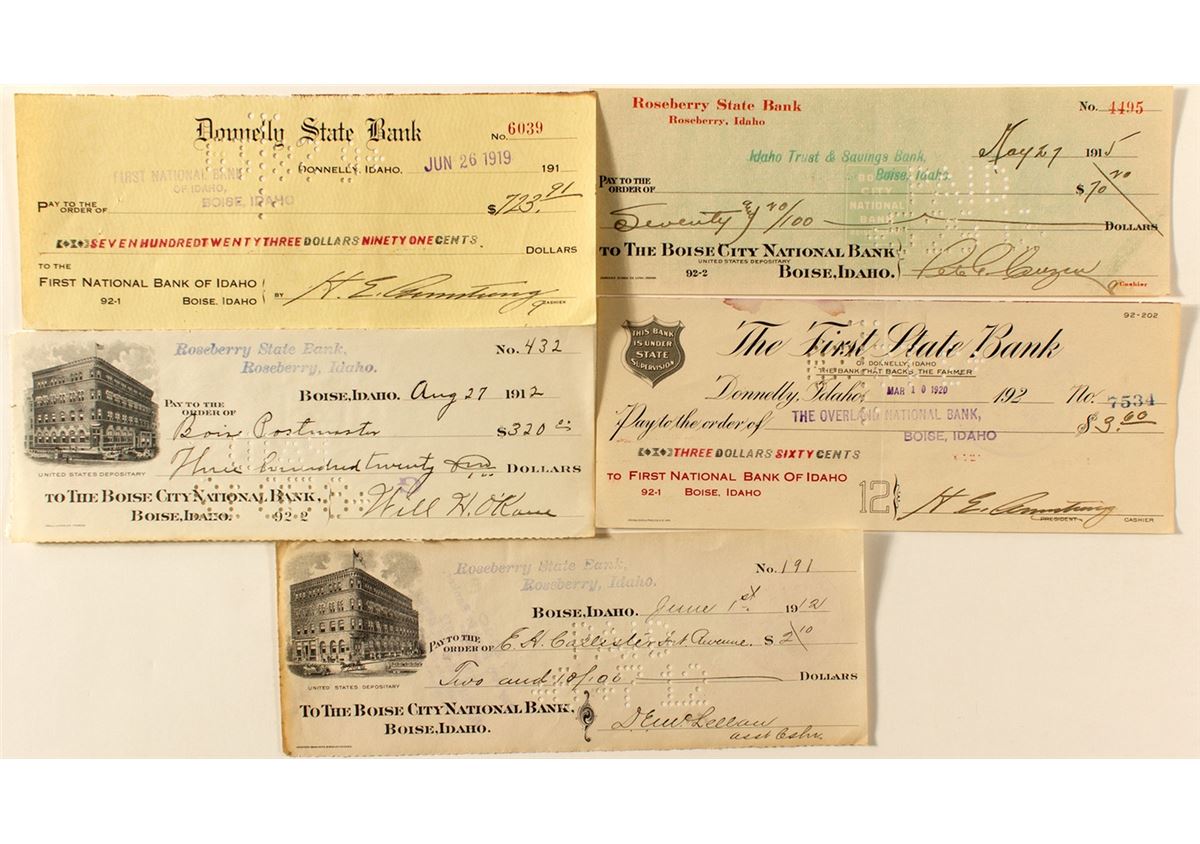 Donnelly State Bank
No. 6039
FIRST NATIONAL BANK
OF IDAHO,
BOISE, IDAHO
DONNELLY, IDAHO, JUN 26 1919 191
PAY TO THE
ORDER OF $723.91
SEVEN HUNDRED TWENTY THREE DOLLARS NINETY ONE CENTS
DOLLARS
TO THE
FIRST NATIONAL BANK OF IDAHO
92-1 BOISE, IDAHO
BY H. E. Armstrong
CASHIER
Roseberry State Bank
Roseberry, Idaho
No. 4495
Idaho Trust & Savings Bank,
Boise, Idaho.
May 27 1915
PAY TO THE
ORDER OF $70 20
BOISE
CITY
NATIONAL
BANK
Seventy & 20/100 DOLLARS
TO THE BOISE CITY NATIONAL BANK
UNITED STATES DEPOSITARY
92-2 BOISE, IDAHO.
Cashier
Roseberry State Bank,
Roseberry, Idaho.
No. 432
BOISE, IDAHO. Aug 27 1912
PAY TO THE
ORDER OF Boise Postmaster $320 00
Three hundred twenty DOLLARS
UNITED STATES DEPOSITARY
TO THE BOISE CITY NATIONAL BANK,
BOISE, IDAHO. 92-2
Will H. O'Kane
92-202
THIS BANK
IS UNDER
STATE
SUPERVISION
The First State Bank
OF DONNELLY, IDAHO
THE BANK THAT BACKS THE FARMER
Donnelly, Idaho, MAR 10 1920 192 No. 7534
Pay to the order of THE OVERLAND NATIONAL BANK, $3.60
BOISE, IDAHO
THREE DOLLARS SIXTY CENTS
TO FIRST NATIONAL BANK OF IDAHO
92-1 BOISE, IDAHO
12
H. E. Armstrong
PRESIDENT CASHIER
Roseberry State Bank,
Roseberry, Idaho.
No. 191
BOISE, IDAHO. June 1st 1912
PAY TO THE
ORDER OF E. H. Callister Int Revenue. $2 10
Two and 10/100 DOLLARS
UNITED STATES DEPOSITARY
TO THE BOISE CITY NATIONAL BANK,
BOISE, IDAHO.
D. E. McLellan
asst Cshr.